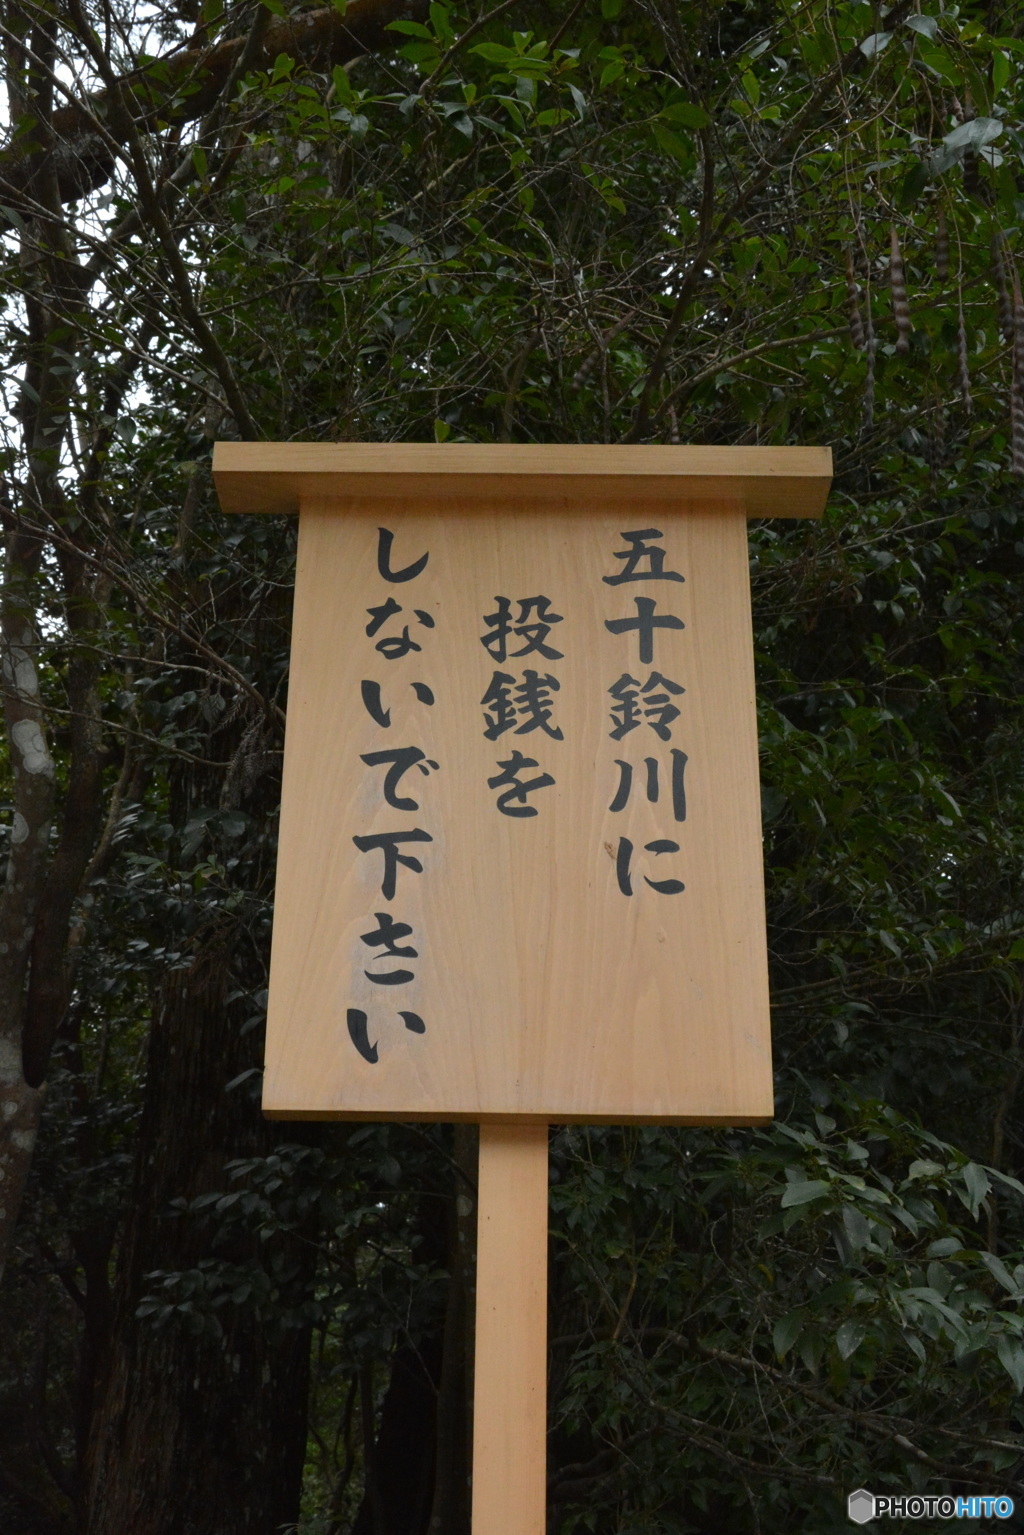 五十鈴川に
投銭を
しないで下さい
PHOTOHITO